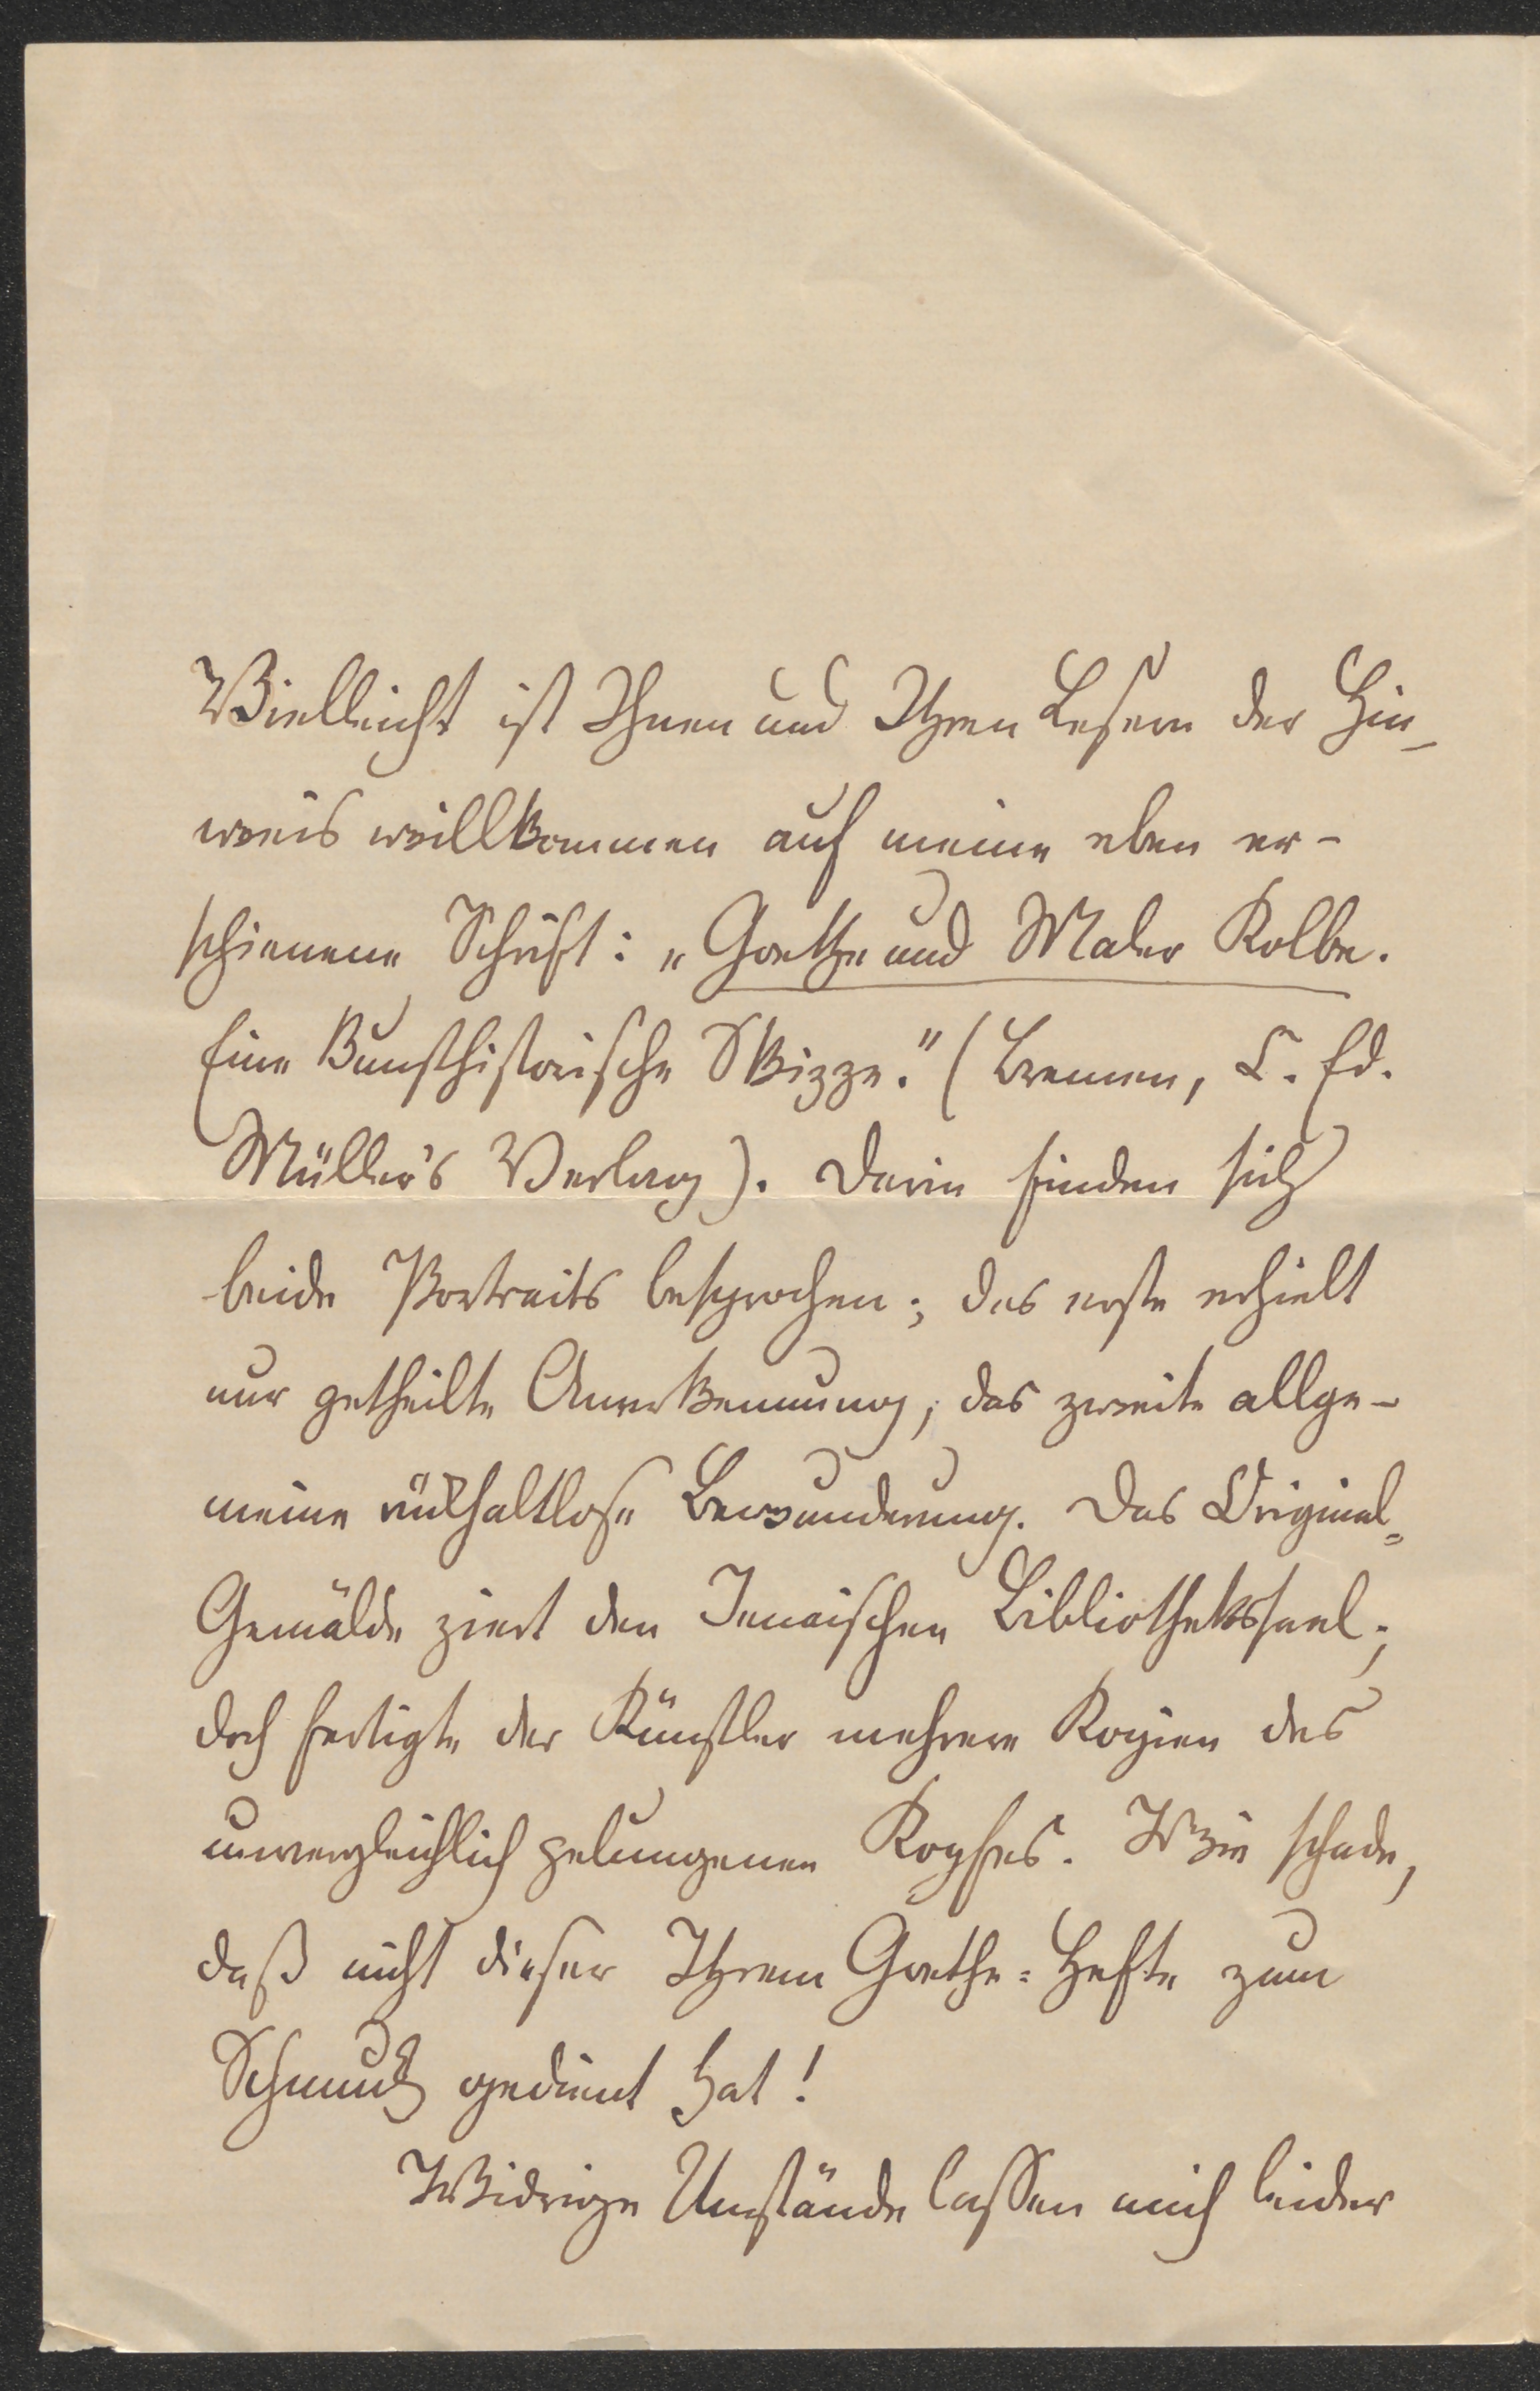 Vielleicht ist Ihnen und Ihren Lesern der Hin-
weis willkommen auf meine eben er-
schienene Schrift: „Goethe und Maler Kolbe.
Eine kunsthistorische Skizze." (Bremen, C. Ed.
Müller's Verlag). Darin finden sich
beide Portraits besprochen; das erste erhielt
nur getheilte Anerkennung, das zweite allge-
meine rückhaltlose Bewunderung. Das Original-
Gemälde ziert den Jenaischen Bibliotheksaal;
doch fertigte der Künstler mehrere Kopien des
unvergleichlich gelungenen Kopfes. Wie schade,
daß nicht dieser Ihrem Goethe-Hefte zum
Schmuck gedient hat!
Widrige Umstände lassen mich leider